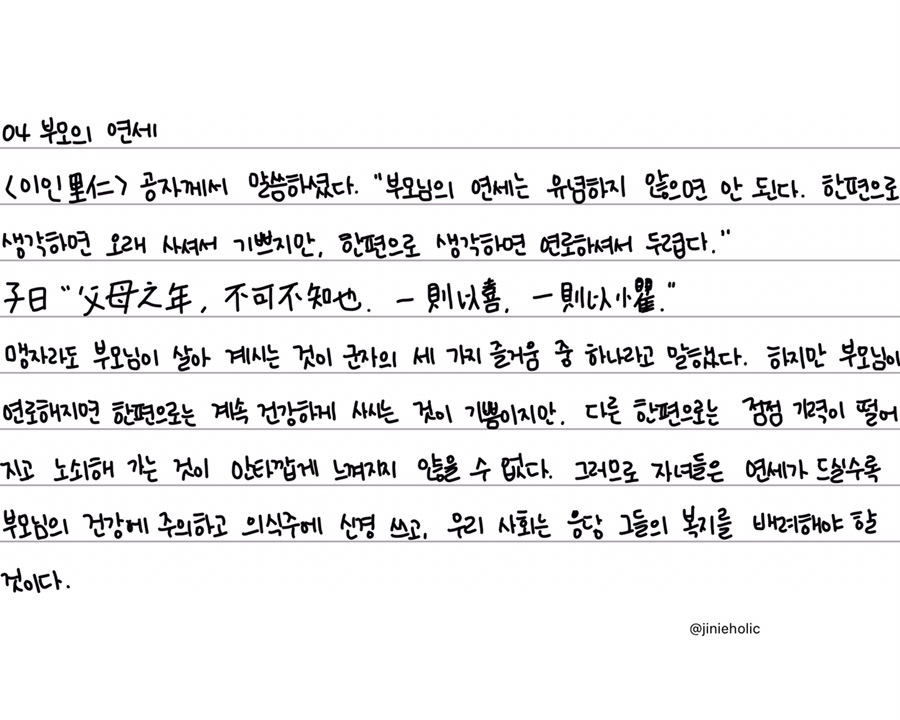 04 부모의 연세
<이인里仁> 공자께서 말씀하셨다. "부모님의 연세는 유념하지 않으면 안 된다. 한편으로
생각하면 오래 사셔서 기쁘지만, 한편으로 생각하면 연로하셔서 두렵다."
子曰 "父母之年, 不可不知也. 一則以喜, 一則以懼."
맹자라도 부모님이 살아 계시는 것이 군자의 세 가지 즐거움 중 하나라고 말했다. 하지만 부모님이
연로해지면 한편으로는 계속 건강하게 사시는 것이 기쁨이지만, 다른 한편으로는 점점 기력이 떨어
지고 노쇠해 가는 것이 안타깝게 느껴지지 않을 수 없다. 그러므로 자녀들은 연세가 드실수록
부모님의 건강에 주의하고 의식주에 신경 쓰고, 우리 사회는 응당 그들의 복지를 배려해야 할
것이다.
@jinieholic